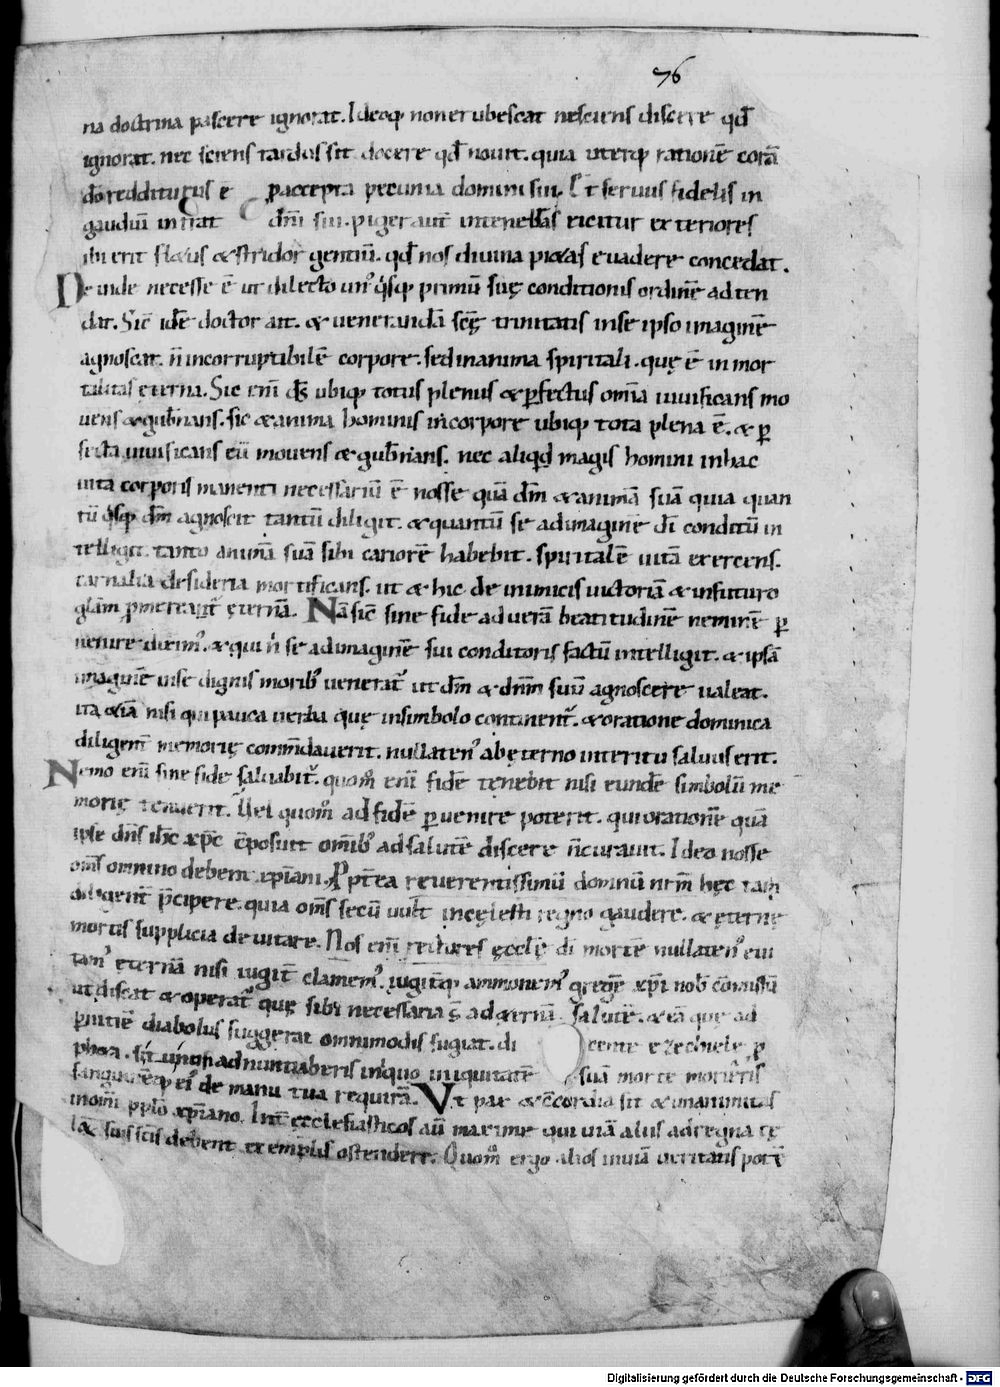 76
na doctrina pascere ignorat. Ideoq; non erubescat nesciens discere qđ
ignorat. nec sciens tardus sit docere qđ nouit. quia uterq; rationē corā
dō redditurus ē p accepta pecunia domini sui. Et seruus fidelis in
gaudiū intrat dn̄i sui. piger aut̄ in tenebras eicitur exteriores
ibi erit fletus & stridor gentiū. qđ nos diuina pi&as euadere concedat.
De inde necesse ē ut dilecto un' q'sq; primū suę conditionis ordinē ad ten
dat. Sic idē doctor ait. & uenerandā scę trinitatis in se ipso imaginē
agnoscat. n̄ incorruptibilē corpore. sed in anima spiritali. quę ē in mor
talitas ęterna. Sic eni d̄s ubiq; totus plenus & ꝑfectus om̄ia uiuificans mo
uens & gub̄nans. sic & anima hominis in corpore ubiq; tota plena ē. & ꝑ
fecta uiuificans eū mouens & gub̄nans. nec aliqđ magis homini in hac
uita corporis manenti necessariū ē nosse quā dm̄ & animā suā quia quan
tū q'sq; dm̄ agnoscit tantū diligit. & quantū se ad imaginē dī conditū in
telligit. tanto animā suā sibi cariorē habebit. spiritalē uitā exercens.
carnalia desideria mortificans. ut & hic de inimicis uictoriā & in futuro
glām ꝓmereant̄ ęternā. Nā sic̄ sine fide ad uerā beatitudinē neminē ꝑ
uenire dixim'. & qui n̄ se ad imaginē sui conditoris factū intelligit. & ipsā
imaginē in se dignis morib' uenerat' ut dm̄ & dn̄m suū agnoscere ualeat.
ita &iā nisi qui pauca uerba quę in simbolo continent'. & oratione dominica
diligent̄ memorię comm̄dauerit. nullaten' ab ęterno interitu saluus erit.
Nemo eni sine fide saluabit'. quom̄ eni fidē tenebit nisi eundē simbolū me
morię tenuerit. Vel quom̄ ad fidē ꝑuenire poterit. qui orationē quā
ipse dn̄s ihc xp̄c cposuit om̄ib' ad salutē discere n̄ curauit. Ideo nosse
om̄s omnino debent xp̄iani. Ppt̄ea reuerentissimū domnū nr̄m hęc tam
diligent̄ p̄cipere. quia om̄s secū uult in cęlesti regno gaudere. & ęternę
mortis supplicia deuitare. Nos eni rectores ęcclę dī mortē nullaten' eui
tam' ęternā nisi iugit̄ clamem'. iugit̄q; ammonem' gregē xp̄i nob̄ cōmissū
ut discat & operat' quę sibi necessaria s̄ ad ęternā salutē. & eā quę ad
ꝑnitiē diabolus suggerat omnimodis fugiat. di cente ezechiele ꝓ
ph&a. si n̄ adnuntiaberis iniquo iniquitatē suā morte morieris
sanguinēq; ei' de manu tua requirā. Vt pax & cc̄ordia sit & unanimitas
in om̄i pplo xp̄iano. Int̄ ecclesiasticos aū maxime qui uiā aliis ad regna cę
l& suis scīs debent exemplis ostendere. Quom̄ ergo alios in uiā ueritatis potē
Digitalisierung gefördert durch die Deutsche Forschungsgemeinschaft - DFG